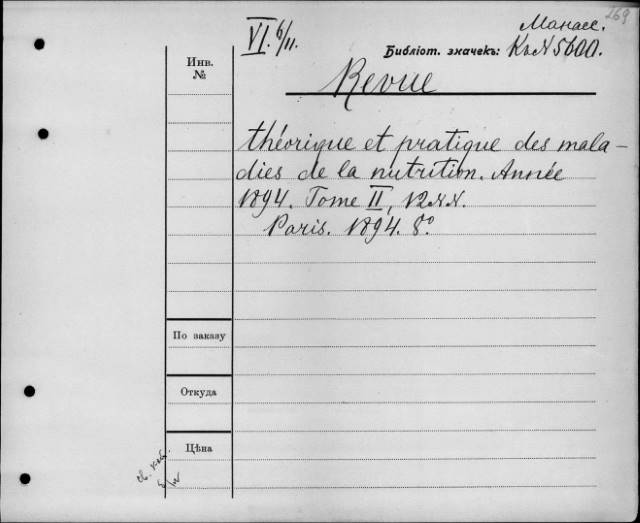 269
VI. 6/11.
Манасс.
Библіот. значекъ: К N 5600.
Инв.
№
Revue
théorique et pratique des mala-
dies de la nutrition. Année
1894. Tome II, 12 N.N.
Paris. 1894. 8°.
По заказу
Откуда
Цѣна